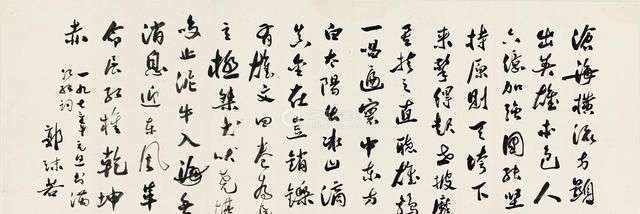 沧海横流方显
出英雄本色人
六亿加强团结坚
持原则天垮下
来擎得起世披靡
矣扶之直听雄鸡
一唱遍寰中东方
白太阳出冰山滴
真金在岂销铄
有雄文四卷为民
立极桀犬吠尧堪
笑止泥牛入海无
消息迎东风革
命展红旗乾坤
赤
郭沫若